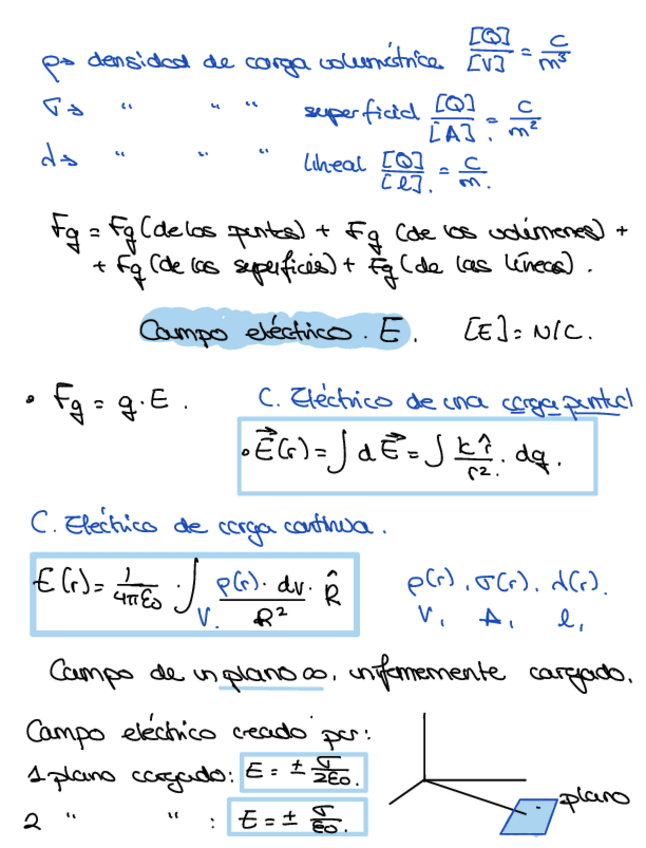 ρ→ densidad de carga volumétrica [Q]/[V] = C/m³
σ→ " " " superficial [Q]/[A]. = C/m²
λ→ " " " lineal [Q]/[l]. = C/m.
Fq = Fq (de los puntos) + Fq (de los volúmenes) +
+ Fq (de las superficies) + Fq (de las líneas).
Campo eléctrico. E. [E] = N/C.
• Fq = q·E. C. Eléctrico de una carga puntual
• E⃗(r) = ∫ dE⃗ = ∫ k r̂/r². dq.
C. Eléctrico de carga continua.
E(r) = 1/4πε0 · ∫V. ρ(r)· dv· R̂/R² ρ(r), σ(r), λ(r).
V, A, l,
Campo de un plano ∞, uniformemente cargado.
Campo eléctrico creado por:
1 plano cargado: E = ± σ/2ε0. plano
2 " " : E = ± σ/ε0.